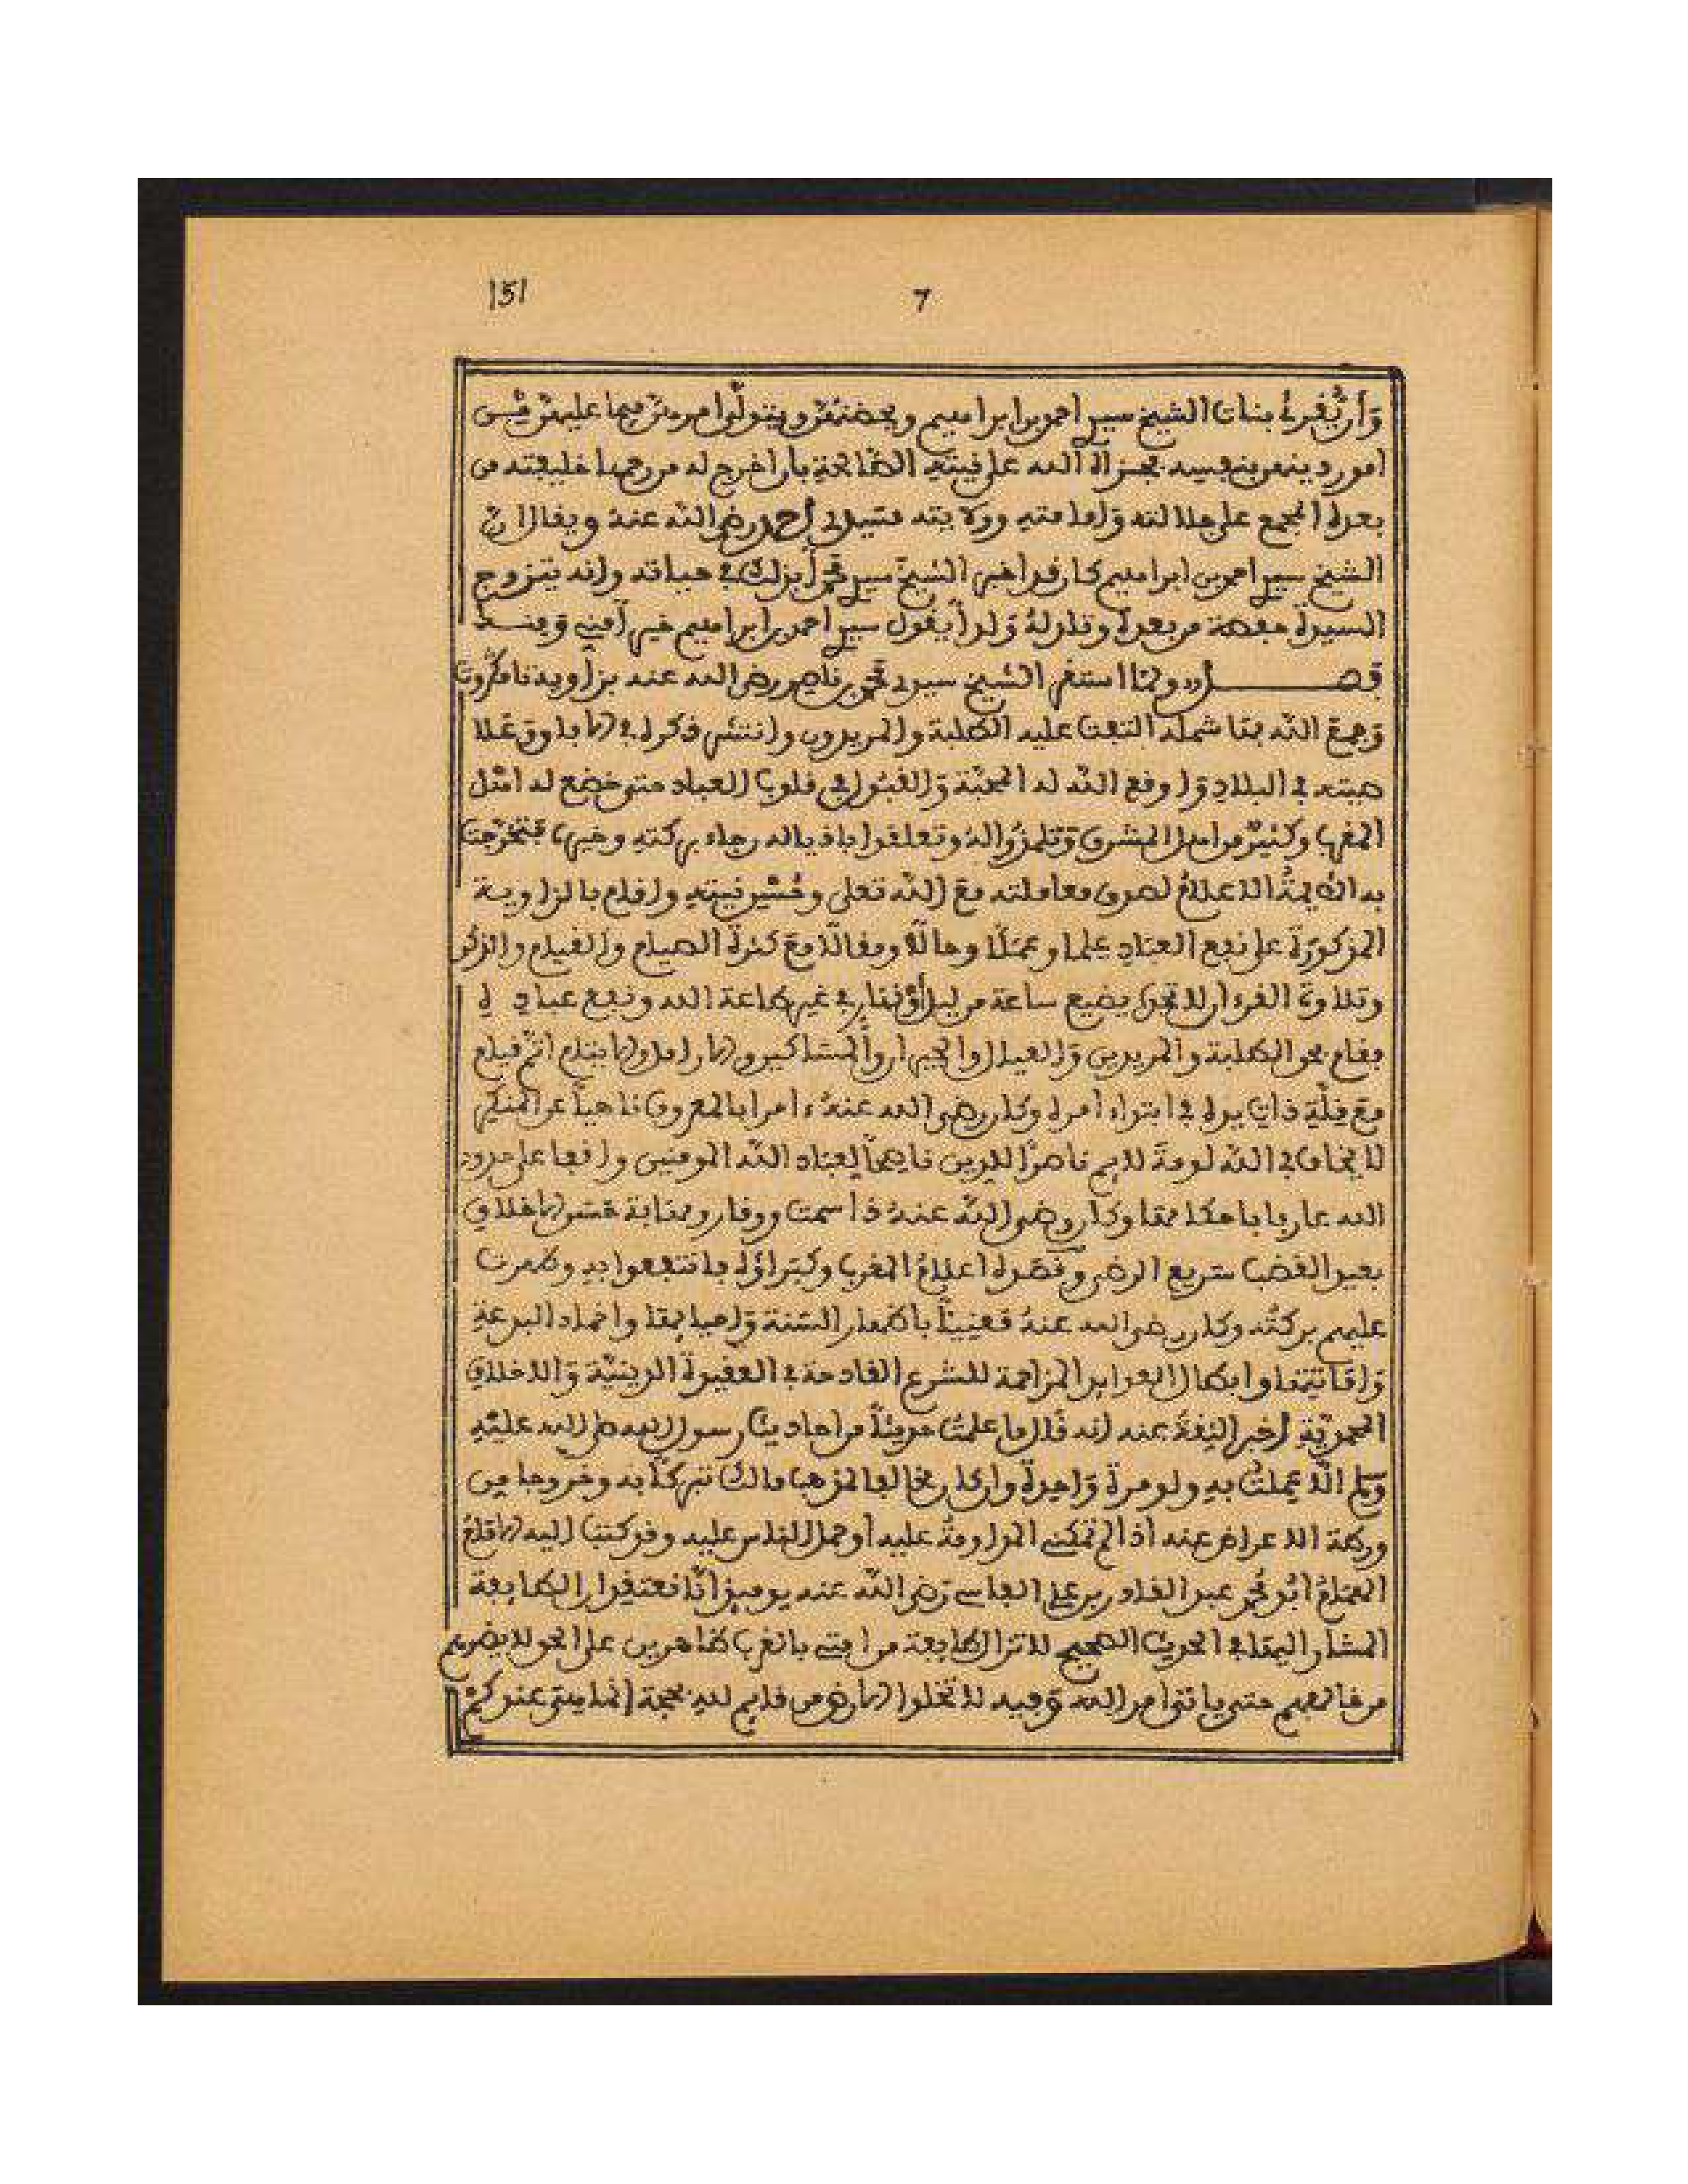 151
7
وأن يُقرئ بنات الشيخ سيدي احمد بن ابراهيم ويحضنهن ويتولّى امرهن فيما عليهن من
امور دينهن بنفسه فجزاه الله على نيته الصالحة بان اخرج له من رحمها خليفته من
بعده المجمع على جلالته وإمامته وولايته سيدي أحمد رضي الله عنه ويقال ان
الشيخ سيدي احمد بن ابراهيم كان قد اخبر الشيخ سيدي محمد بذلك في حياته وانه يتزوج
السيدة حفصة من بعده وتلد له ولدا يقول سيدي احمد بن ابراهيم خير مني ومنه
فصل ولما استقر الشيخ سيدي محمد بن ناصر رضي الله عنه بزاويته تامكروت
وجمع الله بها شمله التفت عليه الطلبة والمريدون وانتشر ذكره في الافاق وعلا
صيته في البلاد وأوقع الله له المحبة والقبول في قلوب العباد حتى خضع له اهل
المغرب وكثيرٌ من اهل المشرق وتلمذُوا له وتعلقوا باذياله رجاء بركته وخيره فتخرجت
به الأيمةُ الاعلامُ لصدق معاملته مع الله تعلى وحُسن نيته واقام بالزاوية
المذكورة على نفع العباد علما وعملًا وحالًا ومقالًا مع كثرة الصيام والقيام والذكر
وتلاوة القرءان لا تجده يضيع ساعة من ليل أو نهار في غير طاعة الله ونفع عباده
فقام بحق الطلبة والمريدين والعيال والجيران والمساكين والارامل والايتام اتم قيام
مع قلّة ذات يده في ابتداء امره وكان رضي الله عنه ءامرا بالمعروف ناهيا عن المنكر
لا يخاف في الله لومة لايم ناصرًا للدين ناصحًا لعباد الله المومنين واقفا على حدود
الله عارفا باحكامها وكان رضي الله عنه ذا سمت ووقار ومهابة حسن الاخلاق
بعيد الغضب سريع الرضى وقصده اعلامُ المغرب وكبراؤه فانتفعوا به وظهرت
عليهم بركتُه وكان رضي الله عنه معنيّاً باظهار السُّنة وإحيايها واخماد البدعة
وإماتتها وابطال العوايد المزاحمة للشرع القادحة في العقيدة الدينيّة والاخلاق
المحمديّة أخبر الثقةُ عنه انه قال ما علمتُ حديثًا من احاديث رسول الله صلى الله عليه
وسلم الّا عملت به ولو مرة وَاحدة وان كان مخالفا لمذهب مالك تبركًا به وخروجا من
ورطة الاعراض عنه اذا لم تمكن المداومةُ عليه أو حمل الناس عليه وقد كتب اليه الامام
الهمامُ ابُو محمد عبد القادر بن علي الفاسي رضي الله عنه يوميذ انّا نعتقد ان الطايفة
المشار اليها في الحديث الصحيح لا تزال طايفة من امتي بالغرب ظاهرين على الحق لا يضرهم
من خالفهم حتى ياتي امر الله وفيه لا تخلو الارض من قايم لله بحجة انما هي عندكم